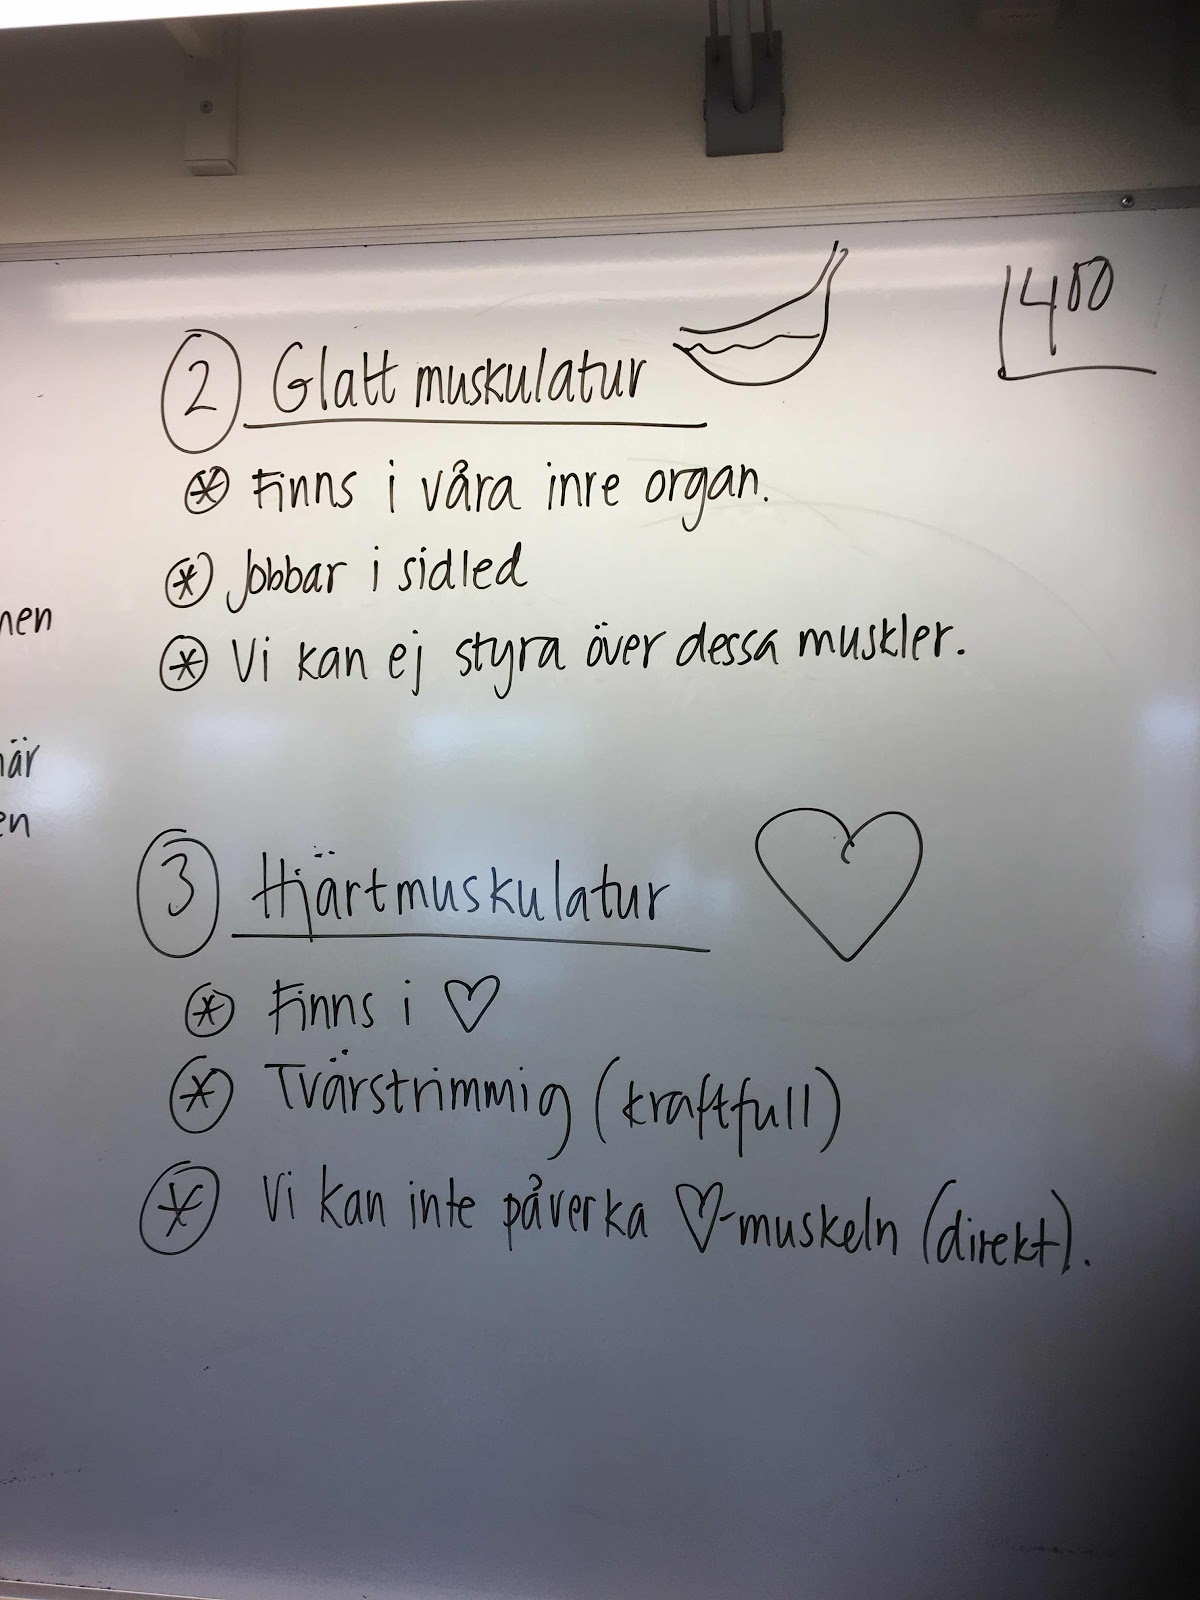 1400
② Glatt muskulatur
⊛ Finns i våra inre organ.
⊛ Jobbar i sidled
⊛ Vi kan ej styra över dessa muskler.
när
en
③ Hjärtmuskulatur
⊛ Finns i ♡
⊛ Tvärstrimmig (kraftfull)
⊛ Vi kan inte påverka ♡-muskeln (direkt).